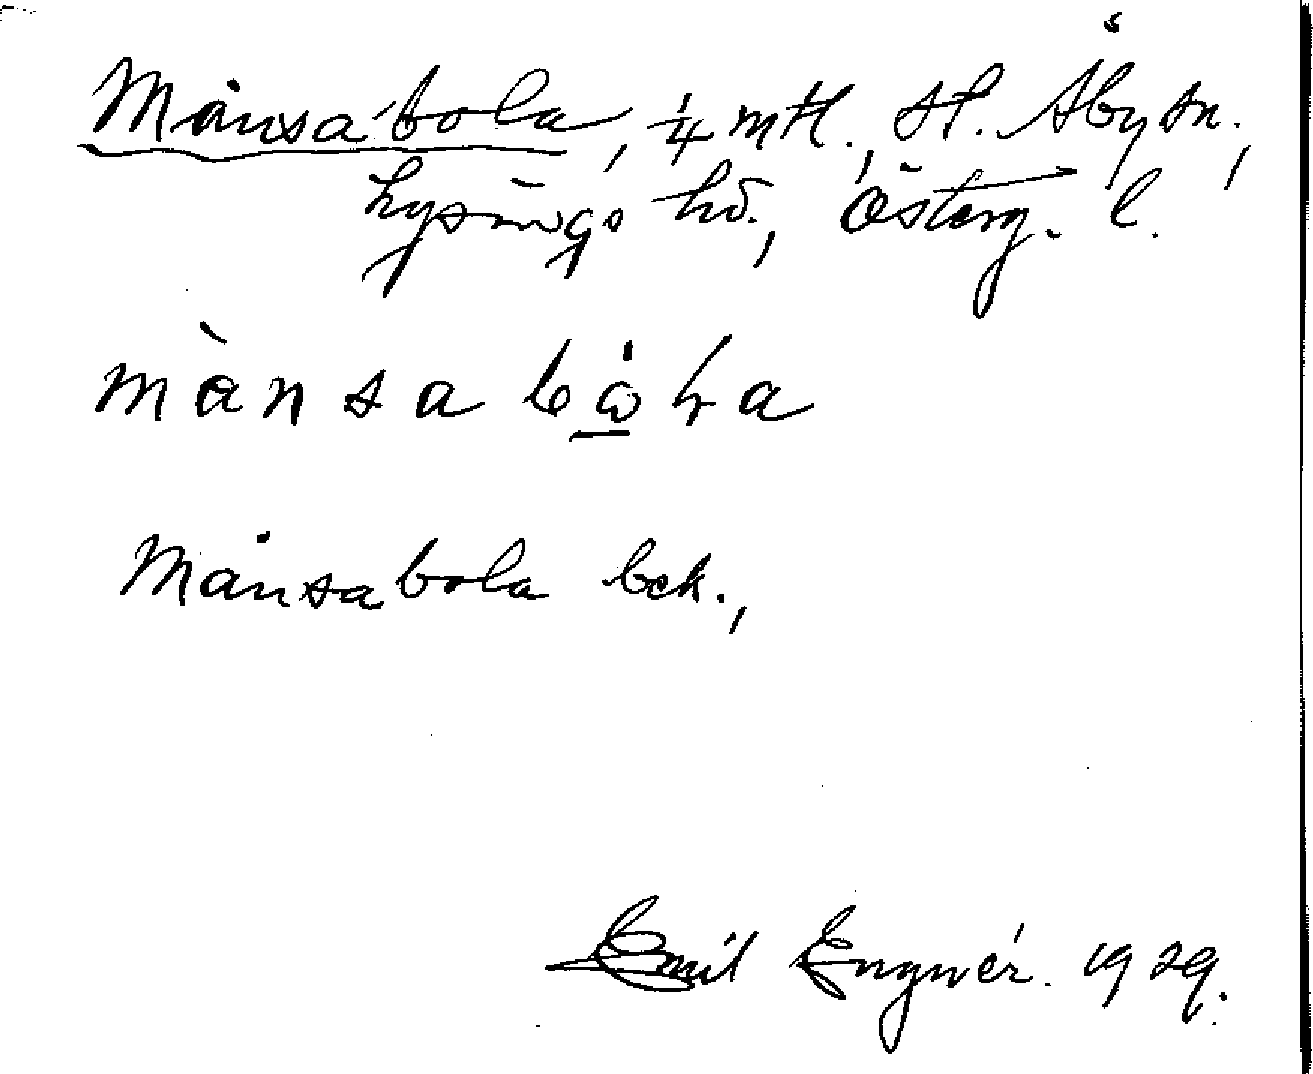 Månsabola, 1/4 mtl., St. Åby sn.,
Lysings hd., Österg. l.
mànsabå̱ɬa
Månsabola bek.,
Emil Engnér. 1929.